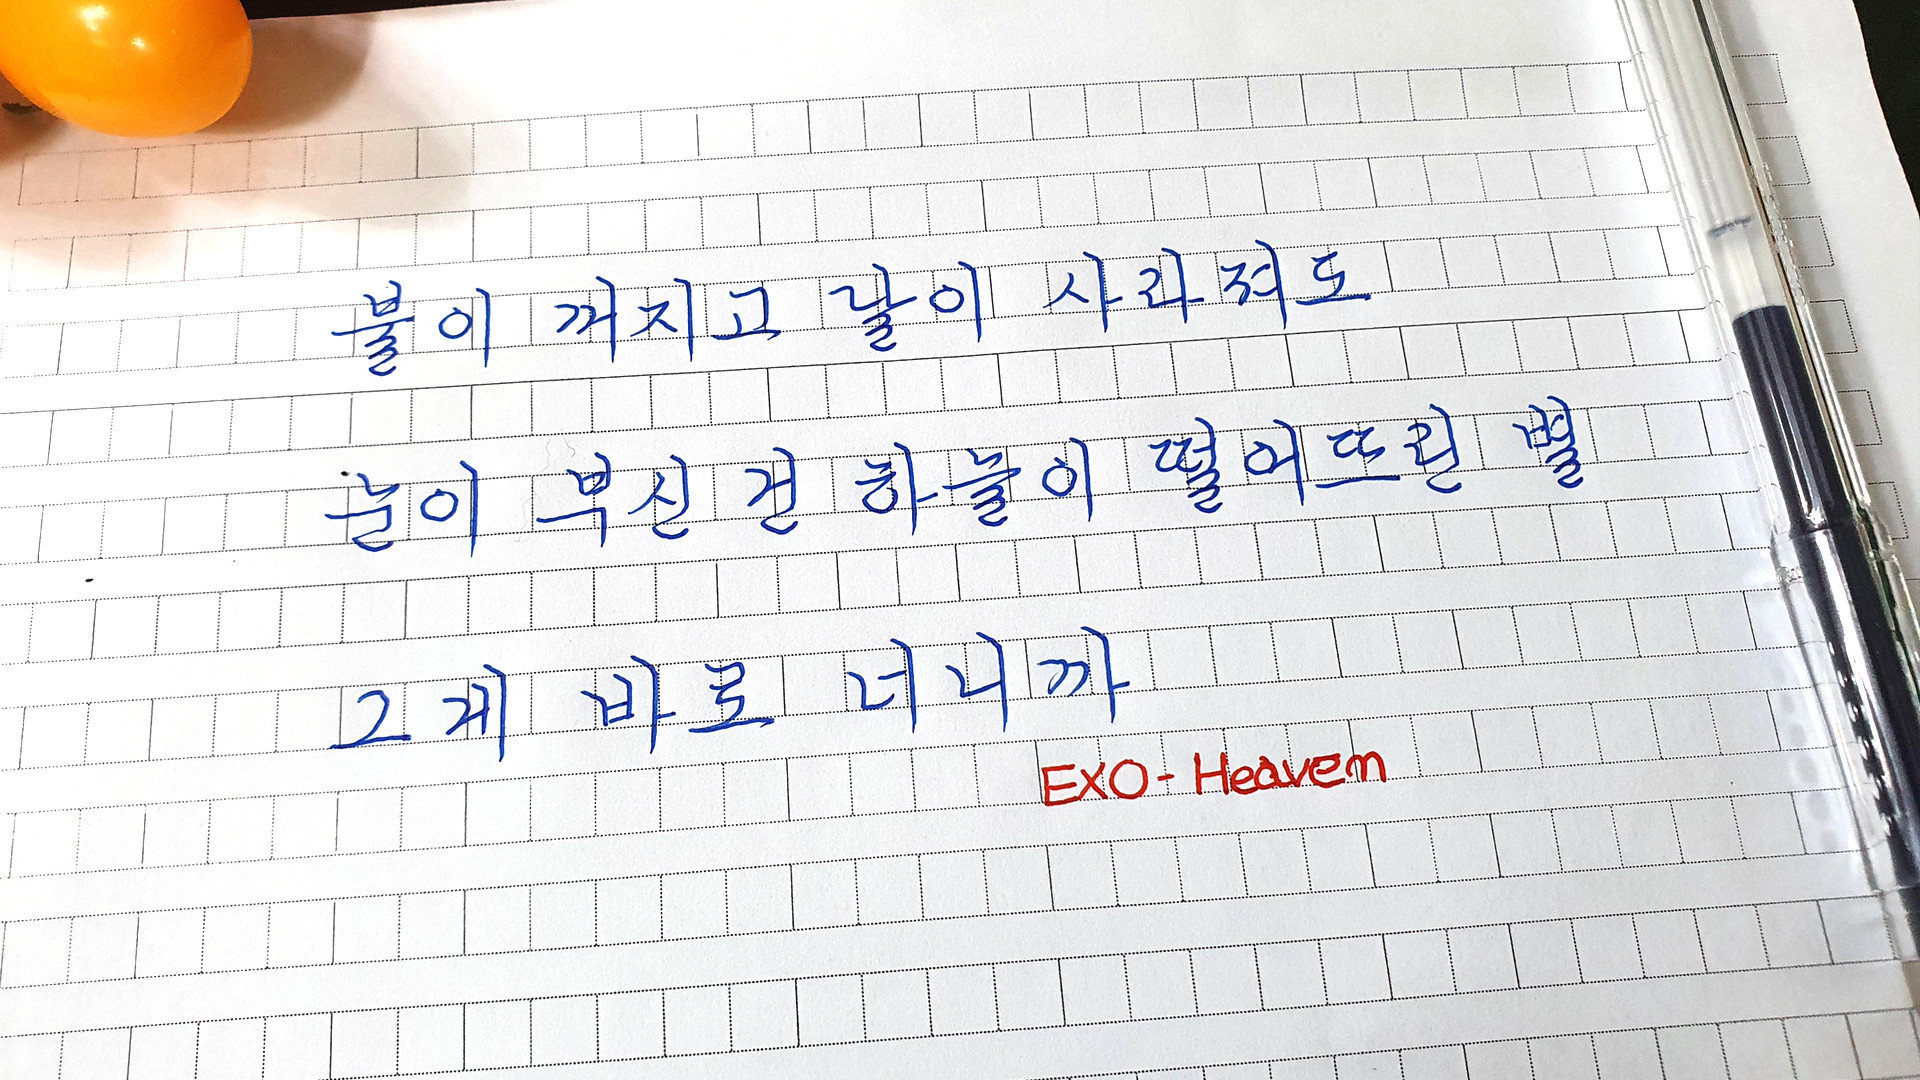 불이 꺼지고 달이 사라져도
눈이 부신 건 하늘이 떨어뜨린 별
그게 바로 너니까
EXO - Heaven